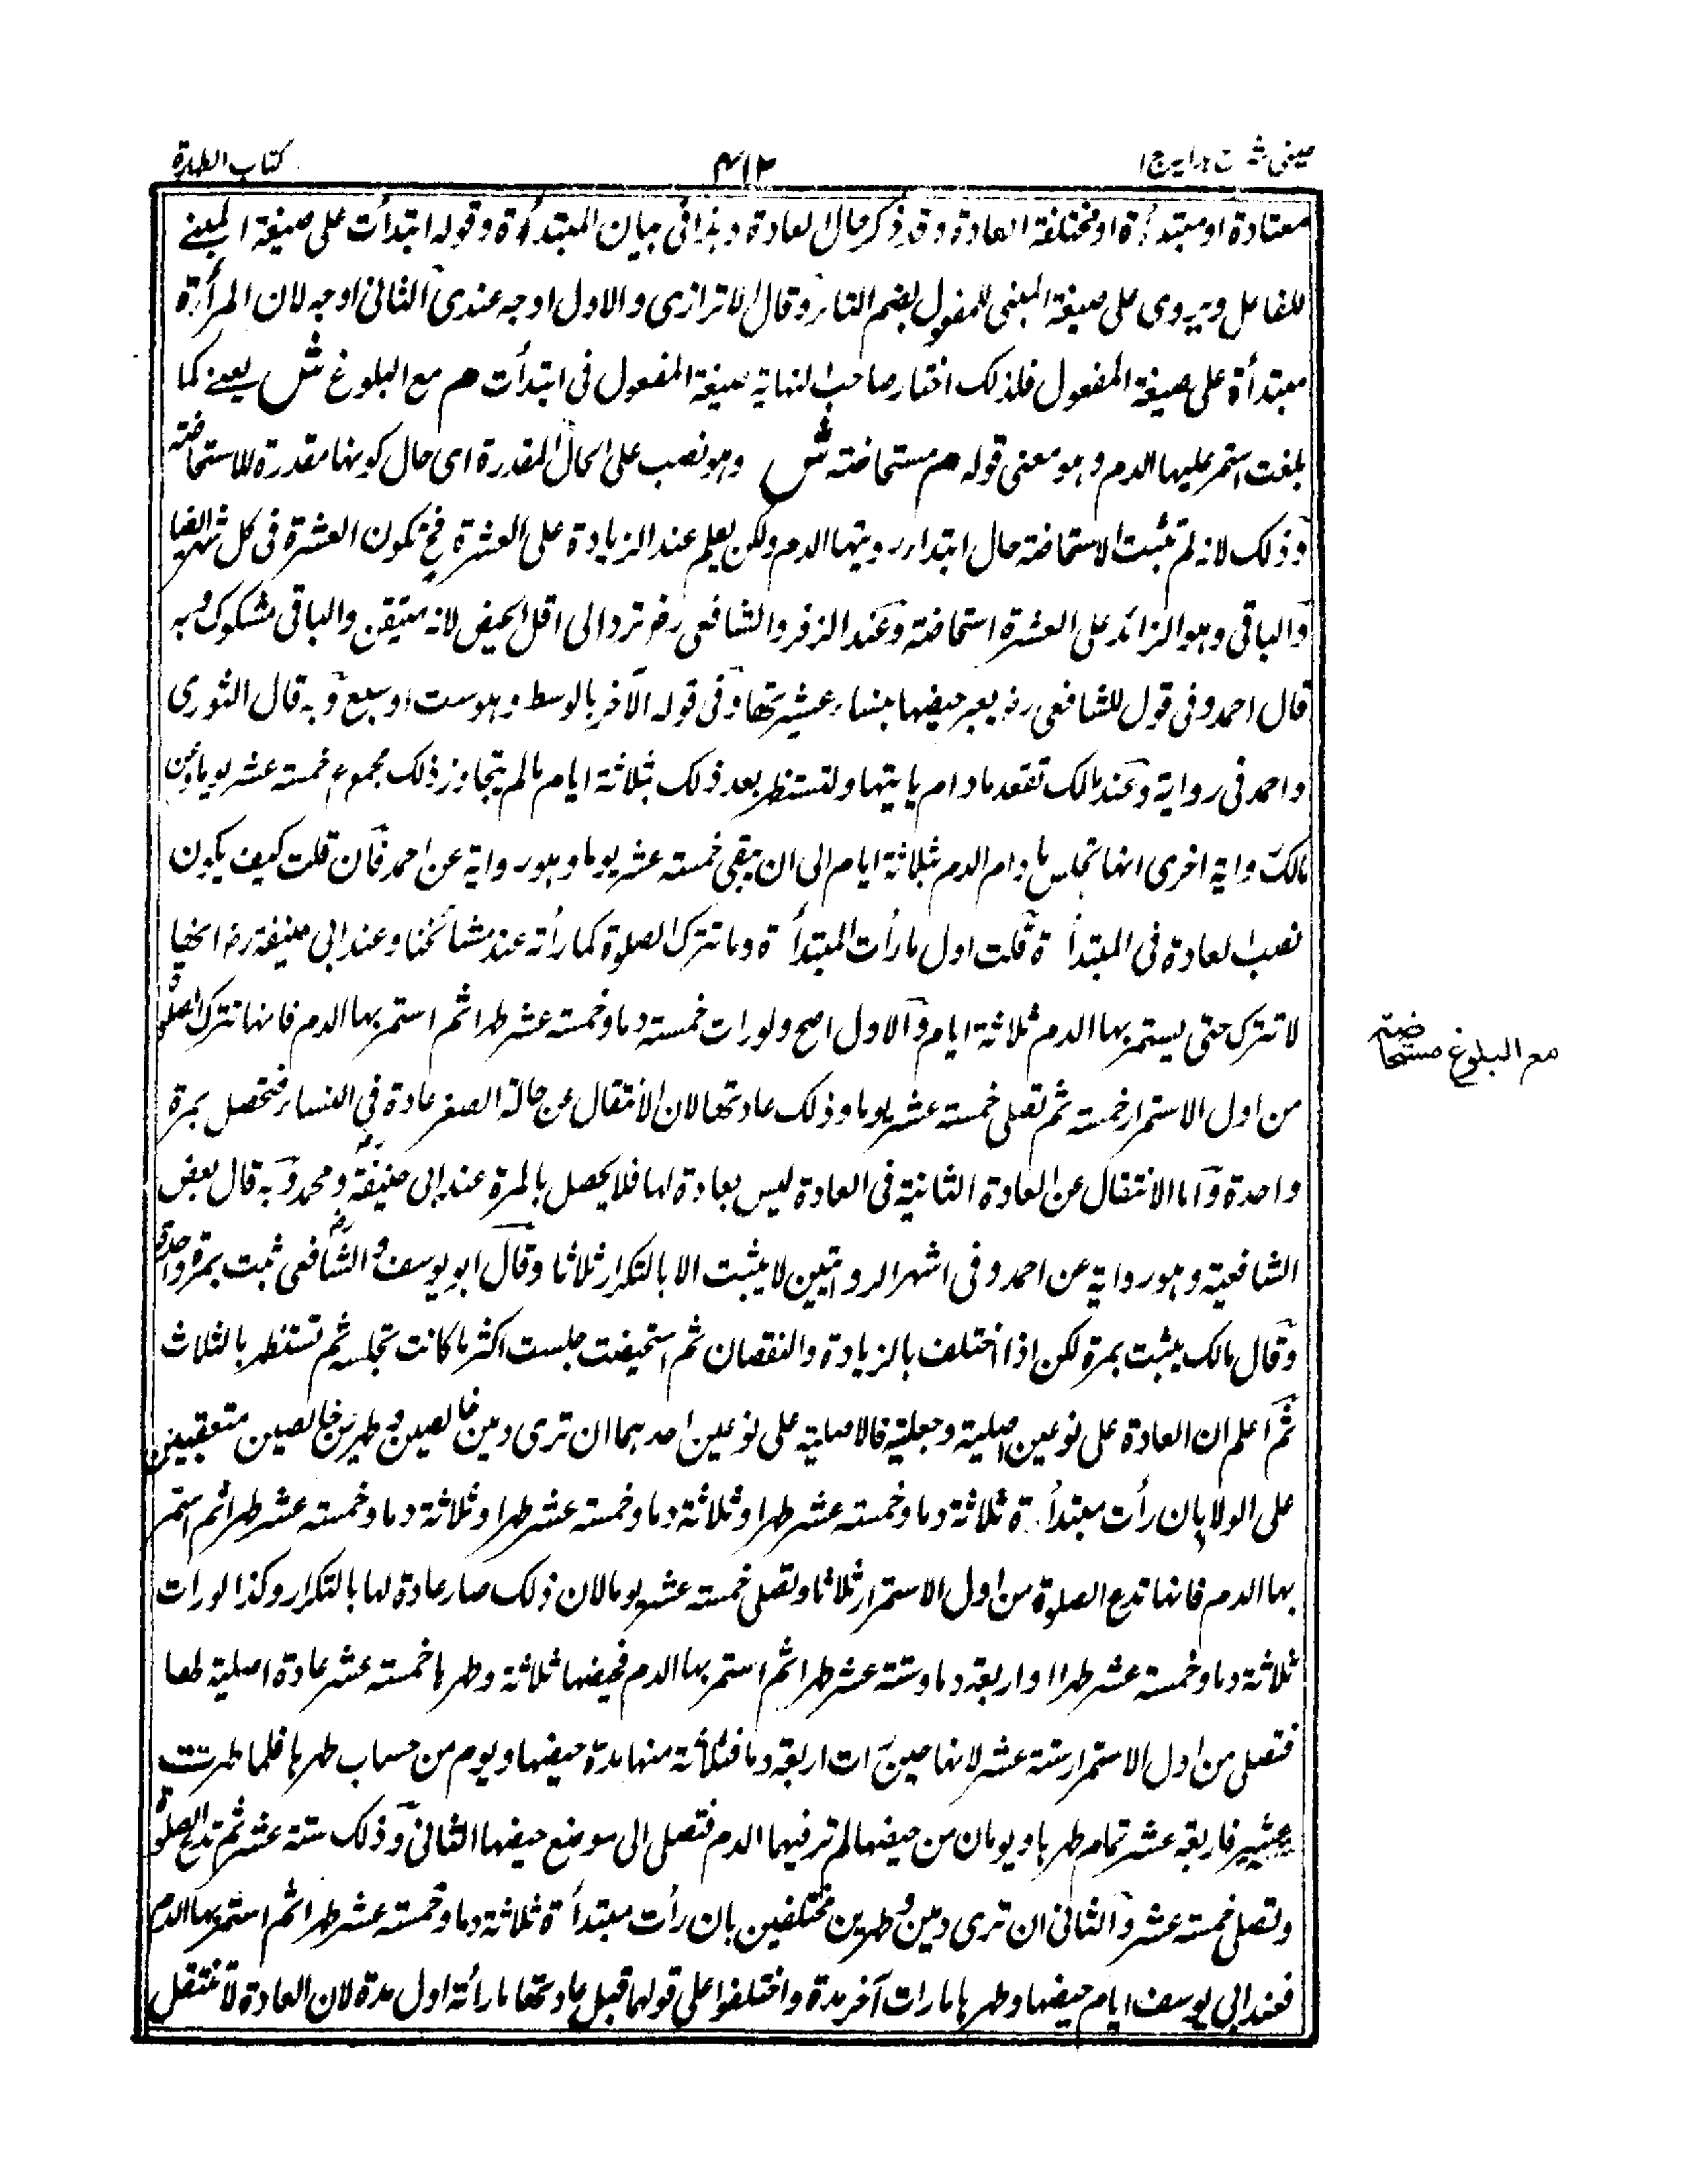 عینی شرح ہدایہ ج ۱
۴۱۲
کتاب الطہارة
معتادة او مبتدأة او مختلفة العادة وقد ذكر حال العادة وہذا فی بیان المبتدأة وقوله ابتدأت على صيغة المبنے
للفاعل ويروى على صيغة المبنى للمفعول بضم التاء وقال الاترازى والاول اوجه عندى الثانى اوجه لان المرأة
مبتدأة على صيغة المفعول فلذلك اختار صاحب النهاية صيغة المفعول فى ابتدأت هم مع البلوغ ش یعنے كما
بلغت استمر عليها الدم وہو معنى قوله هم مستحاضة ش وہو نصب على الحال المقدرة اى حال كونها مقدرة للاستحاضة
وذلك لانه لم تثبت الاستحاضة حال ابتداء رويتها الدم ولكن يعلم عند الزيادة على العشرة فح تكون العشرة فى كل شهر حيضا
والباقى وہو الزائد على العشرة استحاضة وعند الزفر والشافعى رض ترد الى اقل الحيض لانه متيقن والباقى مشكوك وبه
قال احمد وفى قول للشافعى رض يعبر حيضها بنساء عشيرتها وفى قوله الآخر بالوسط وہو ست او سبع وبه قال الثورى
واحمد فى رواية وعند مالك تقعد مادام ياتيها وتستظهر بعد ذلك بثلاثة ايام مالم يتجاوز ذلك مجموع خمسة عشر يوما وعن
مالك رواية اخرى انها تجلس مادام الدم ثلاثة ايام الى ان يبقى خمسة عشر يوما وہو رواية عن احمد فان قلت كيف يكون
نصب العادة فى المبتدأة قلت اول ما رأت المبتدأة دما تترك الصلوة كما رأته عند مشائخنا وعند ابى حنيفة رض انها
لا تترك حتى يستمر بها الدم ثلاثة ايام والاول اصح ولو رات خمسة دما وخمسة عشر طهرا ثم استمر بها الدم فانها تترك الصلوة
من اول الاستمرار خمسة ثم تصلى خمسة عشر يوما وذلك عادتها لان الانتقال عن حالة الصغر عادة فى النساء فتحصل بمرة
واحدة واما الانتقال عن العادة الثانية فى العادة ليس بعادة لها فلا يحصل بالمرة عند ابى حنيفة رح ومحمد وبه قال بعض
الشافعية وہو رواية عن احمد وفى اشهر الروايتين لا يثبت الا بالتكرار ثلاثا وقال ابو يوسف والشافعى رح ثبت بمرة واحدة
وقال مالك يثبت بمرة لكن اذا اختلف بالزيادة والنقصان ثم استحيضت جلست اكثر ما كانت تجلسه ثم تستظهر بالثلاث
ثم اعلم ان العادة على نوعين اصلية وجعلية فالاصلية على نوعين احدہما ان ترى دمين خالصين وطهرين خالصين متعقبين
على الولا بان رأت مبتدأة ثلاثة دما وخمسة عشر طهرا وثلاثة دما وخمسة عشر طهرا وثلاثة دما وخمسة عشر طهرا ثم استمر
بها الدم فانها تدع الصلوة من اول الاستمرار ثلاثا وتصلى خمسة عشر يوما لان ذلك صار عادة لها بالتكرار وكذا لو رات
ثلاثة دما وخمسة عشر طهرا واربعة دما وستة عشر طهرا ثم استمر بها الدم فحيضها ثلاثة وطہرہا خمسة عشر عادة اصلية لها
فتصلى من اول الاستمرار ستة عشر لانها حين رات اربعة دما فثلاثة منها مدة حيضها ويوم من حساب طہرہا فلما طہرت
فاربعة عشر تمام طہرہا ويومان من حيضها لم تر فيهما الدم فتصلى الى موضع حيضها الثانى وذلك ستة عشر ثم تدع الصلوة
وتصلى خمسة عشر والثانى ان ترى دمين وطهرين مختلفين بان رأت مبتدأة ثلاثة دما وخمسة عشر طهرا ثم استمر بها الدم
فعند ابى يوسف ايام حيضها وطہرہا ما رات آخر مدة واختلفوا على قولهما قبل عادتها ما رأته اول مدة لان العادة لا تنتقل
مع البلوغ مستحاضة